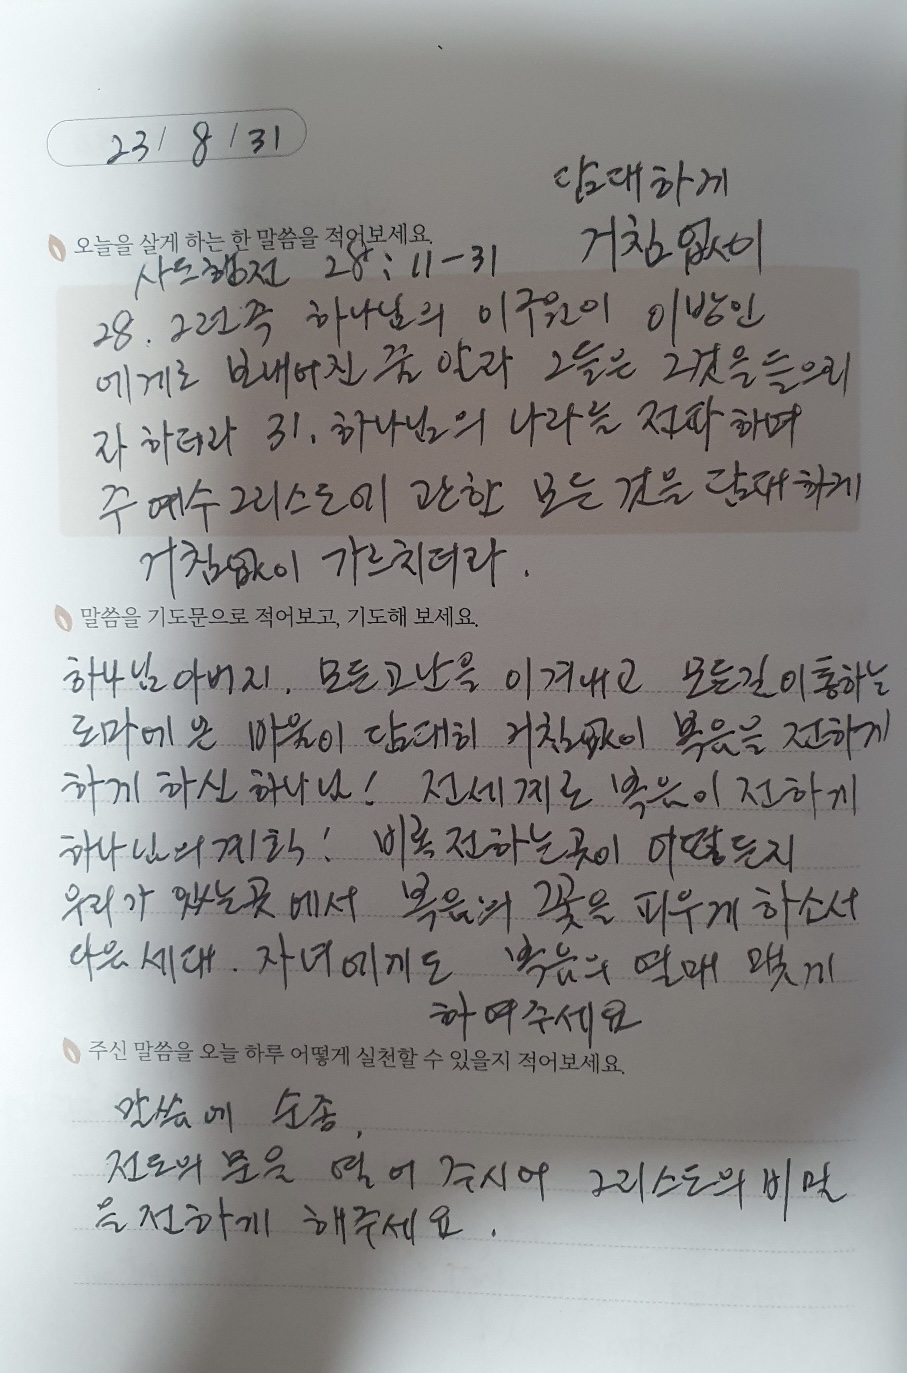 23/ 8/ 31
담대하게
거침없이
오늘을 살게 하는 한 말씀을 적어보세요.
사도행전 28:11-31
28. 그런즉 하나님의 이구원이 이방인
에게로 보내어진 줄 알라 그들은 그것을 들으리
라 하더라 31. 하나님의 나라를 전파하며
주 예수 그리스도에 관한 모든 것을 담대하게
거침없이 가르치더라.
말씀을 기도문으로 적어보고, 기도해 보세요.
하나님 아버지. 모든고난을 이겨내고 모든길이통하는
로마에 온 바울이 담대히 거침없이 복음을 전하게
하게 하신 하나님! 전세계로 복음이 전하게
하나님의 계획! 비록 전하는곳이 어떨든지
우리가 있는곳에서 복음의 꽃을 피우게 하소서
다음 세대. 자녀에게도 복음의 열매 맺게
하여주세요
주신 말씀을 오늘 하루 어떻게 실천할 수 있을지 적어보세요.
말씀에 순종,
전도의 문을 열어 주시어 그리스도의 비밀
을 전하게 해주세요.